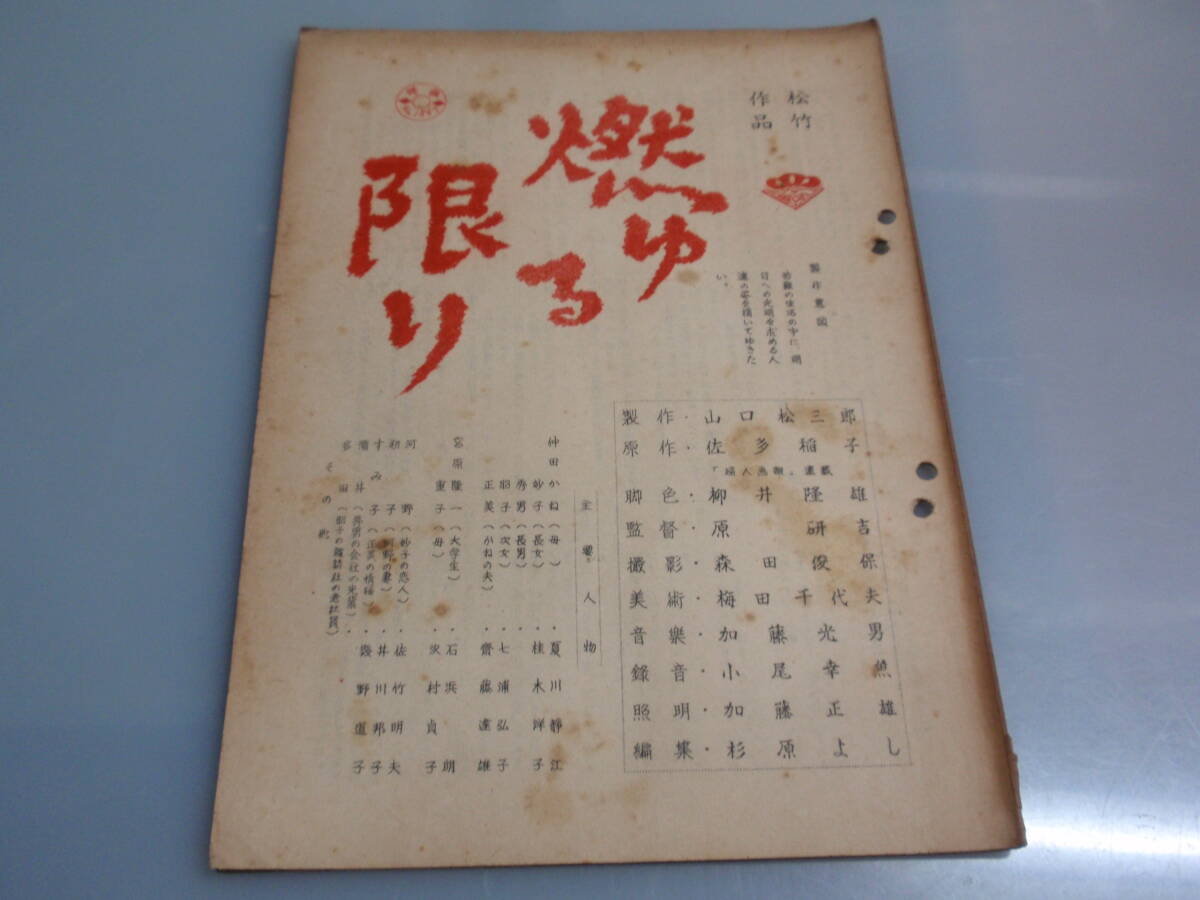 松竹
作品
燃ゆる
限り
製作意図
苦難の生活の中に、明
日への光明を求める人
達の姿を描いてゆきた
い。
製作・山口松三郎
原作・佐多稲子
「婦人魚報」連載
脚色・柳井隆雄
監督・原研吉
撮影・森田俊保
美術・梅田千代夫
音楽・加藤光男
録音・小尾幸魚
照明・加藤正雄
編集・杉原よし
主要人物
仲田かね（母）・夏川静江
妙子（長女）・桂木洋子
秀男（長男）・
昭子（次女）・七浦弘子
正美（かねの夫）・齋藤達雄
宮原隆一（大学生）・石浜朗
重子（母）・沢村貞子
河野（妙子の恋人）・佐竹明夫
初子（河野の妻）・井川邦子
すみ子（正美の情婦）・磯野道子
酒井（秀男の会社の先輩）・
多田（昭子の雑誌社の老社員）
その他